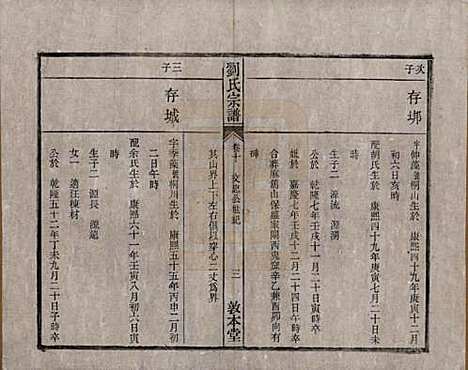 次子
存垹
字仲藻號桐山生於 康熙四十九年庚寅十二月
初六日亥時
配胡氏生於 康熙四十九年庚寅七月二十日未
時
生子二 源流 源瀾
公於 乾隆七年壬戌十一月十二日
妣於 嘉慶七年壬戌十二月二十四日午時
合葬麻崗山保羅家鬧西兜窊辛乙兼酉卯向有
碑
其山界上下左右俱以穿心二丈為界
劉氏宗譜
卷十 文起公世紀
三
敦本堂
三子
存城
字季藻號桐川生於 康熙五十五年丙申二月初
二日午時
配余氏生於 康熙六十一年壬寅八月初六日寅
時
生子二 源長 源遠
女一 適汪棟材
公於 乾隆五十二年丁未九月二十日子時卒